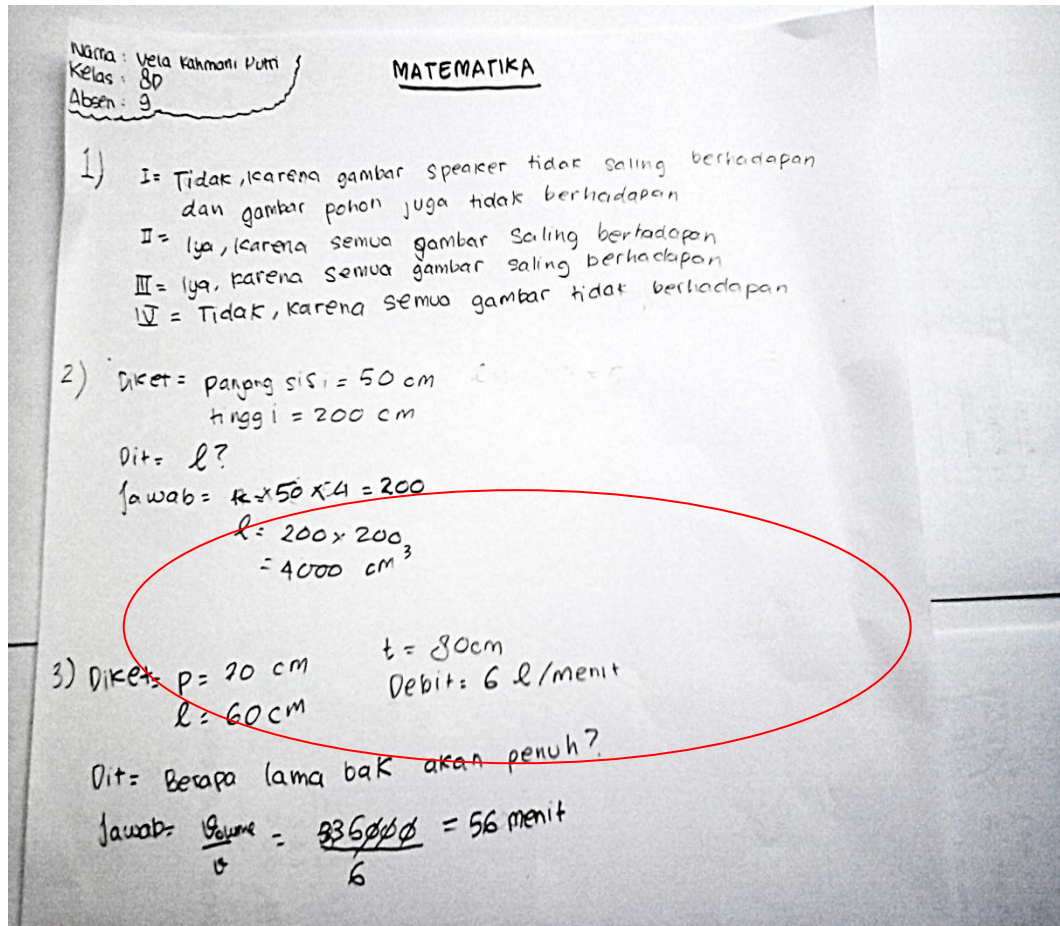 Nama : Vela Rahmani Putri
Kelas : 8D
Absen : 9
MATEMATIKA
1) I = Tidak, karena gambar speaker tidak saling berhadapan
dan gambar pohon juga tidak berhadapan
II = Iya, karena semua gambar saling berhadapan
III = Iya, karena semua gambar saling berhadapan
IV = Tidak, karena semua gambar tidak berhadapan
2) Diket = panjang sisi = 50 cm
tinggi = 200 cm
Dit = l?
Jawab = 50 x 4 = 200
l = 200 x 200
= 4000 cm³
3) Diket = p = 70 cm t = 80cm
l = 60 cm Debit = 6 l/menit
Dit = Berapa lama bak akan penuh?
Jawab = Volume = 336000 = 56 menit
v 6